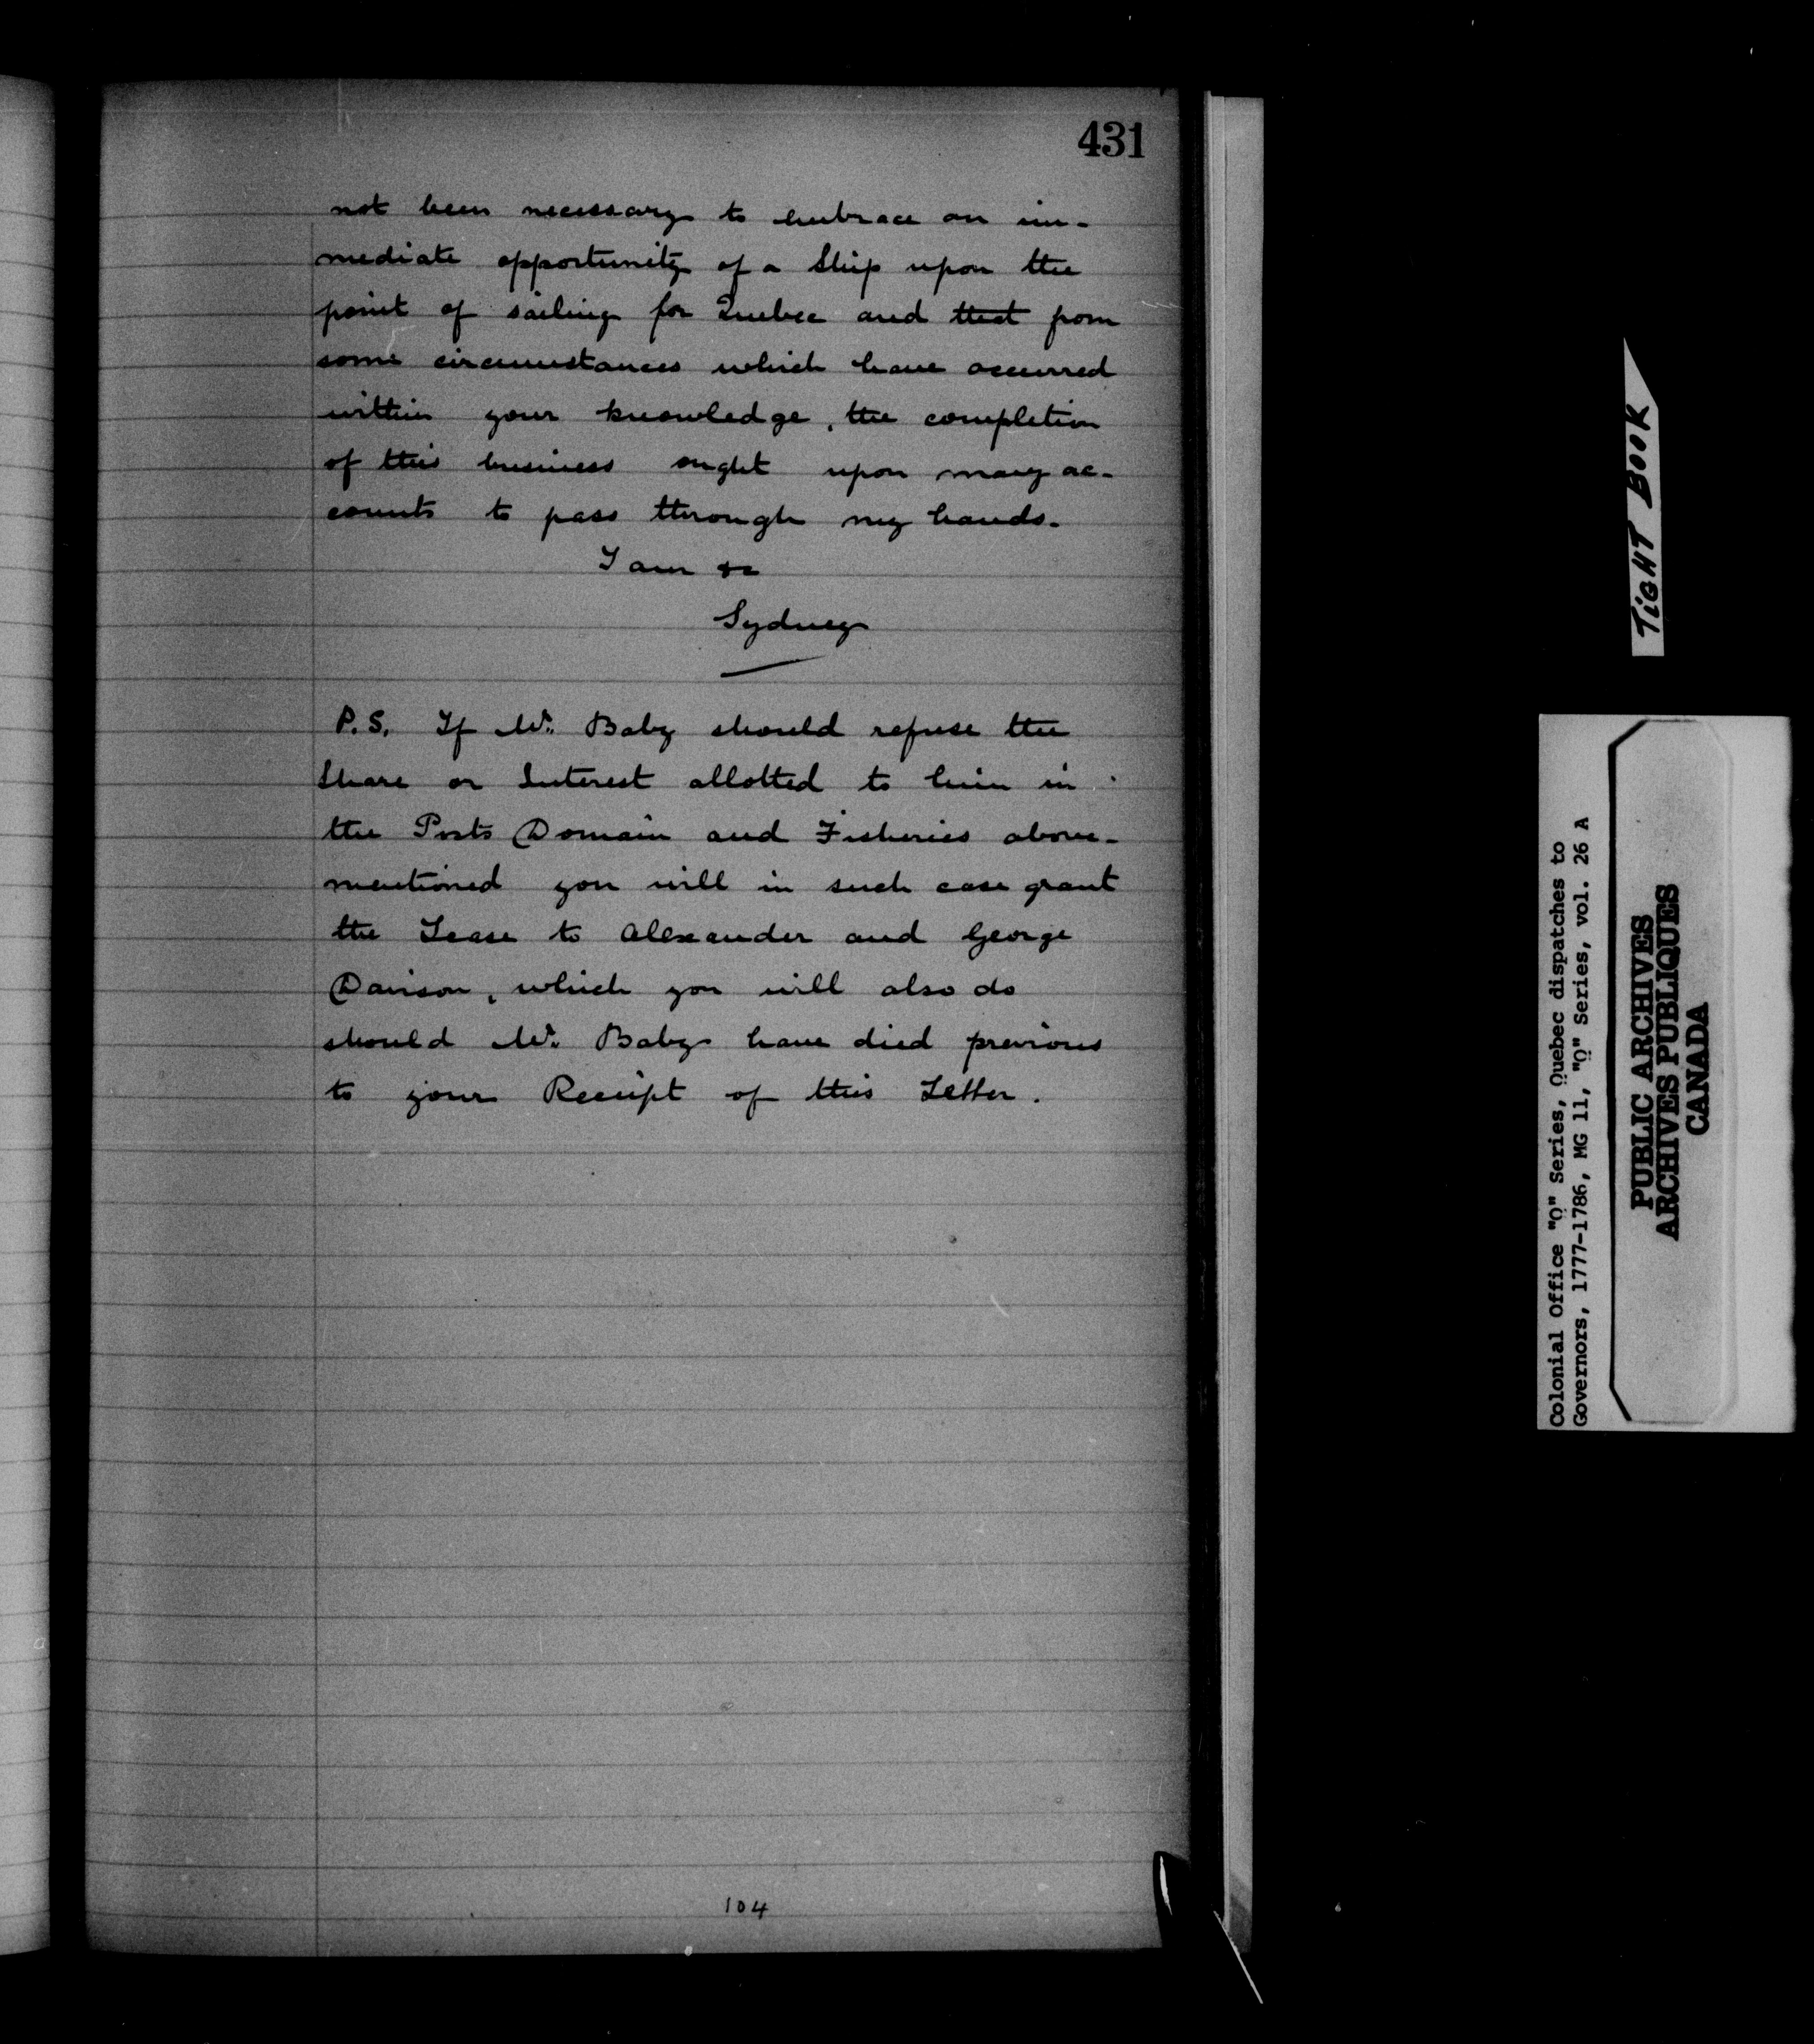 431
not been necessary to embrace an im-
mediate opportunity of a Ship upon the
point of sailing for Quebec and that from
some circumstances which have occurred
within your knowledge, the completion
of this business ought upon many ac-
counts to pass through my hands.
I am &c
Sydney
P.S. If Mr. Baby should refuse the
Share or Interest allotted to him in
the Posts Domain and Fisheries above-
mentioned you will in such case grant
the Lease to Alexander and George
Davison, which you will also do
should Mr. Baby have died previous
to your Receipt of this Letter.
104
TIGHT BOOK
Colonial Office "Q" Series, Quebec dispatches to
Governors, 1777-1786, MG 11, "Q" Series, vol. 26 A
PUBLIC ARCHIVES
ARCHIVES PUBLIQUES
CANADA